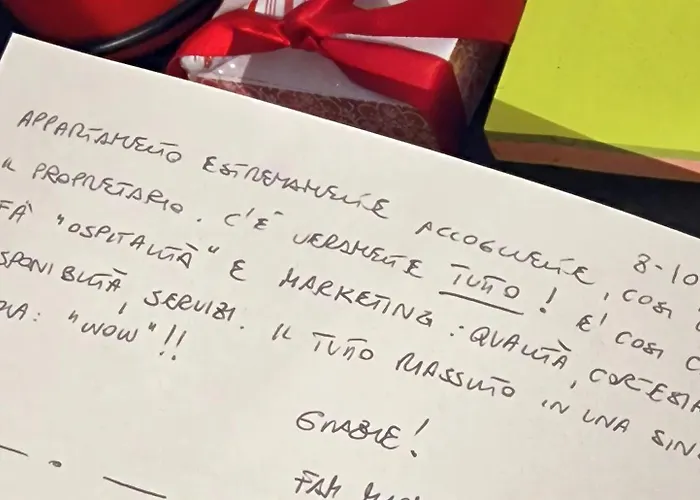 8-10
APPARTAMENTO ESTREMAMENTE ACCOGLIENTE, COSI
IL PROPRIETARIO. C'È VERAMENTE TUTTO! E' COSI C
FÀ "OSPITALITÀ" E MARKETING: QUALITÀ, CORTESIA
SPONIBILITÀ, SERVIZI. IL TUTTO RIASSUNTO IN UNA SIN
OLA: "WOW"!!
GRAZIE!
FAM